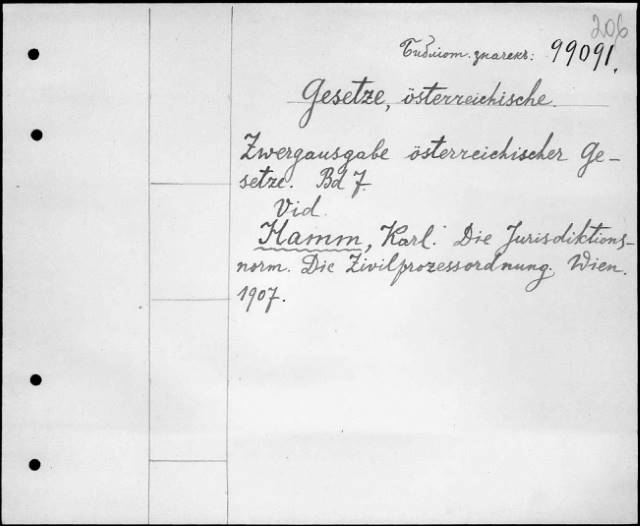 206
Библіот. значекъ: 99091.
Gesetze, österreichische.
Zwergausgabe österreichischer Ge-
setze. Bd 7.
Vid.
Hamm, Karl: Die Jurisdiktions-
norm. Die Zivilprozessordnung. Wien.
1907.